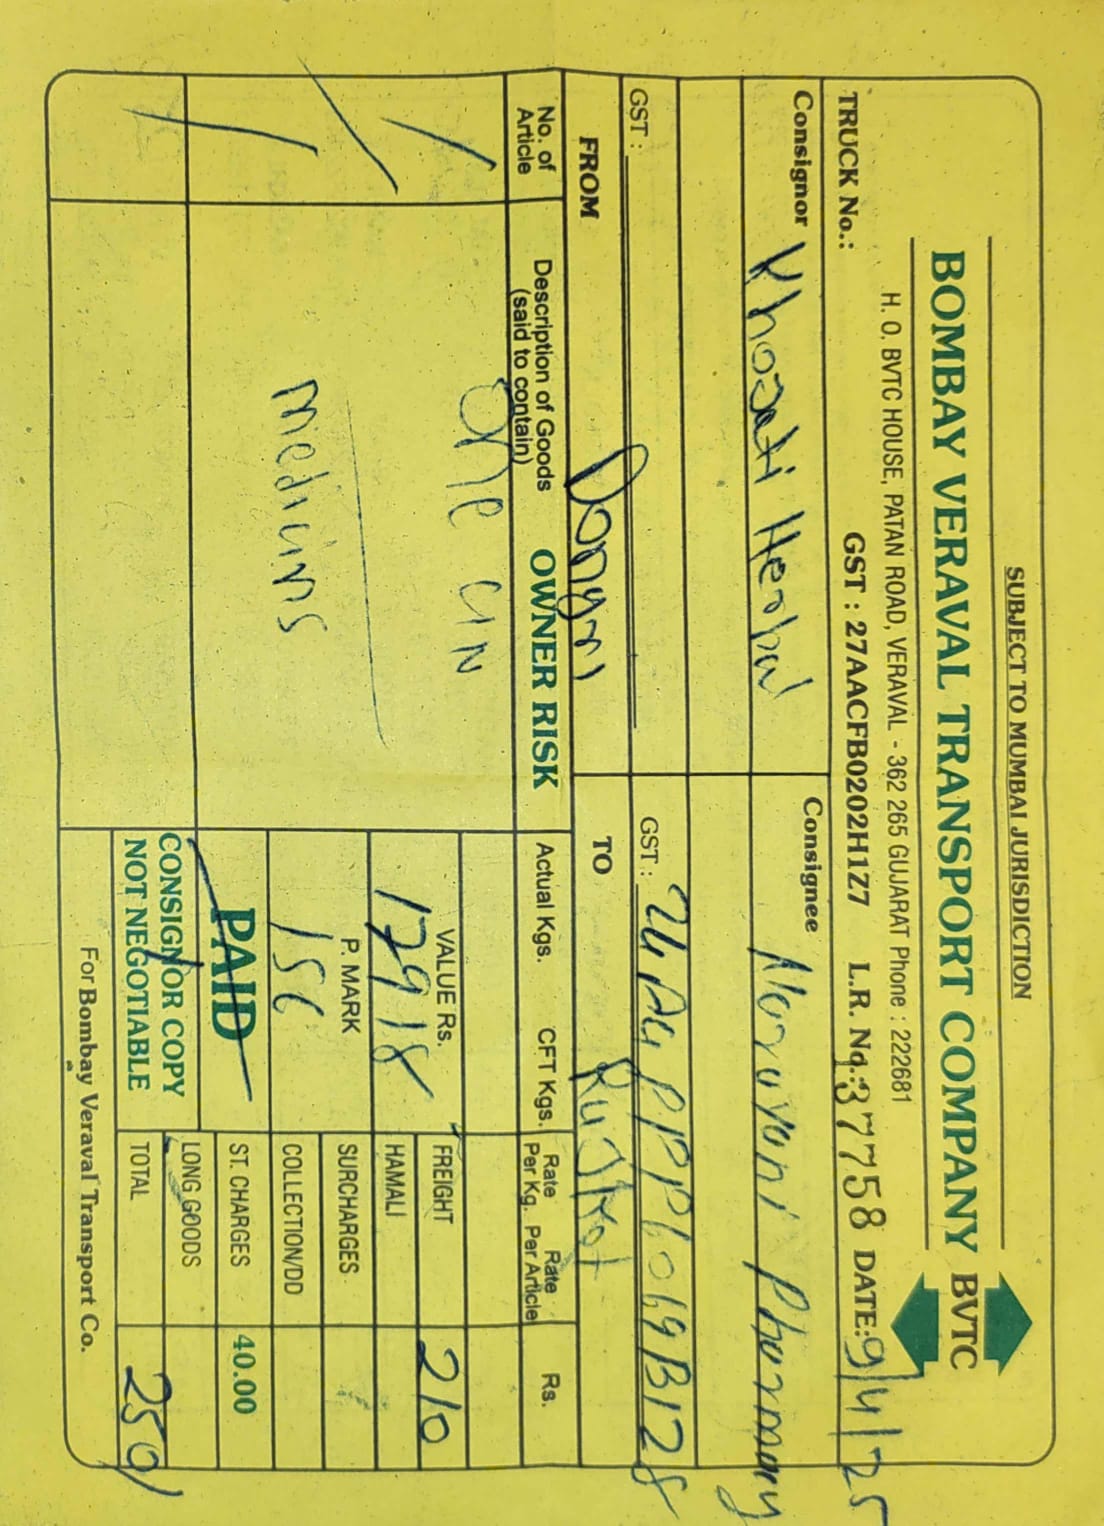 SUBJECT TO MUMBAI JURISDICTION
BOMBAY VERAVAL TRANSPORT COMPANY BVTC
H. O. BVTC HOUSE, PATAN ROAD, VERAVAL - 362 265 GUJARAT Phone : 222681
TRUCK No.: GST : 27AACFB0202H1Z7 L.R. No.: 37758 DATE: 9/4/25
Consignor Khojati Herbal Consignee Narayani Pharmacy
GST : GST :
FROM Dongri TO Rajkot
No. of Article Description of Goods (said to contain) OWNER RISK Actual Kgs. CFT Kgs. Rate Per Kg. Rate Per Article Rs.
one
medicins
VALUE Rs.
17918
P. MARK
PAID
CONSIGNOR COPY
NOT NEGOTIABLE
FREIGHT 210
HAMALI
SURCHARGES
COLLECTION/DD
ST. CHARGES 40.00
LONG GOODS
TOTAL 250/
For Bombay Veraval Transport Co.